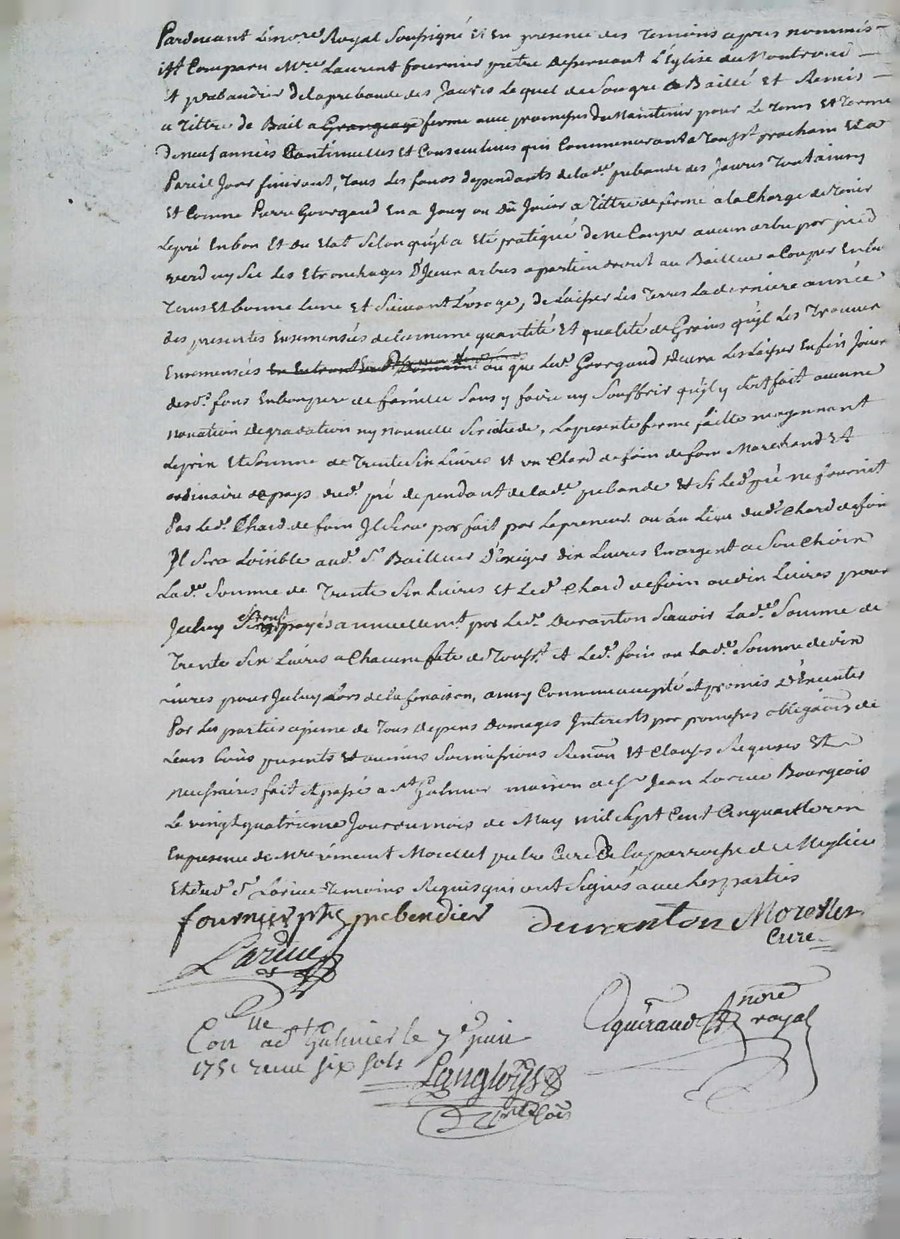 Pardevant Lenore Royal Soussigné Et En presence des Temoins apres nommés
Est Comparu Mre Laurent fournier prètre desservant L'Eglise de
Et prebandier delaprebande des Jaures Lequel desongre a Baillé Et Remis
a Tittre de Bail a Grangeage ferme aux promesses de Maintenir pour Le Tems Et Terme
De neuf années Continuelles Et Consecutives qui Commenceront a Touss.t prochain Et a
Pareil Jour finiront, Tous Les fonds dependants delad.e prebande des Jaures
Et Comme Pierre Gourgaud En a Jouy ou Dû Jouir a Tittre deferme ala Charge de Tenir
Lepré En bon Et du Etat Selon qu'yl a Eté pratiqué de ne Couper aucun arbre par pied
verd ny Sec Les Etronchages D'Iceux arbres apartiendront au Bailleur a Couper En bon
Tems Et bonne Lune Et Suivant L'usage, de Laisser Les Terres La derniere année
des presentes Ensemensés delamême quantité Et qualité de Grains qu'yl Les Trouvera
Ensemensés ou que Led. Gourgaud devra Les Laisser Enfin Jouir
desd. fons En bon pere de famille Sans y faire ny Souffrir qu'yl y Soit fait aucune
novation degradation ny nouvelle Servitude, Lapresente ferme faitte moyennant
Leprix Et Somme de Trente Six Livres Et un Chard de foin de foin Marchand Et
ordinaire depays dud. pré dependant de lad.e prebande Et Si Led. pré ne fournit
Pas Led. Chard de foin Il Sera parfait par Lepreneur ou au Lieu dud. Chard de foin
Il Sera Loisible aud. Sr Bailleur D'Exiger dix Livres En argent a Son Choix
Lad.e Somme de Trente Six Livres Et Led. Chard de foin ou dix Livres pour
Iceluy Seront payés annuellemt. par Led. Duranton Scavoir Lad.e Somme de
Trente Six Livres a Chacune fête de Touss.t Et Led. foin ou Lad.e Somme de dix
Livres pour Iceluy Lors de la fenaison, ainsy Convenu accepté Et promis D'Executer
Par Les parties apeine de Tous Depens Domages Interests par promesses obligaons de
Leurs biens presents Et avenirs Soumissions Renon Et Clauses Requises Et
necessaires fait Et passé a St Galmier maison de Sr Jean Larive Bourgeois
Le vingt quatrieme Jour du mois de May mil Sept Cent Cinquante
En presence de Mre Clément Morellet prètre Curé De la parroisse de
Et dud. Sr Larive Temoins Requis qui ont Signés avec Les parties
fournier ptre prebendier duranton Morellet
Curé
Larive
Aguiraud nore royal
Conlle a St Galmier le 7e juin
1751 recu six sols
Langloys